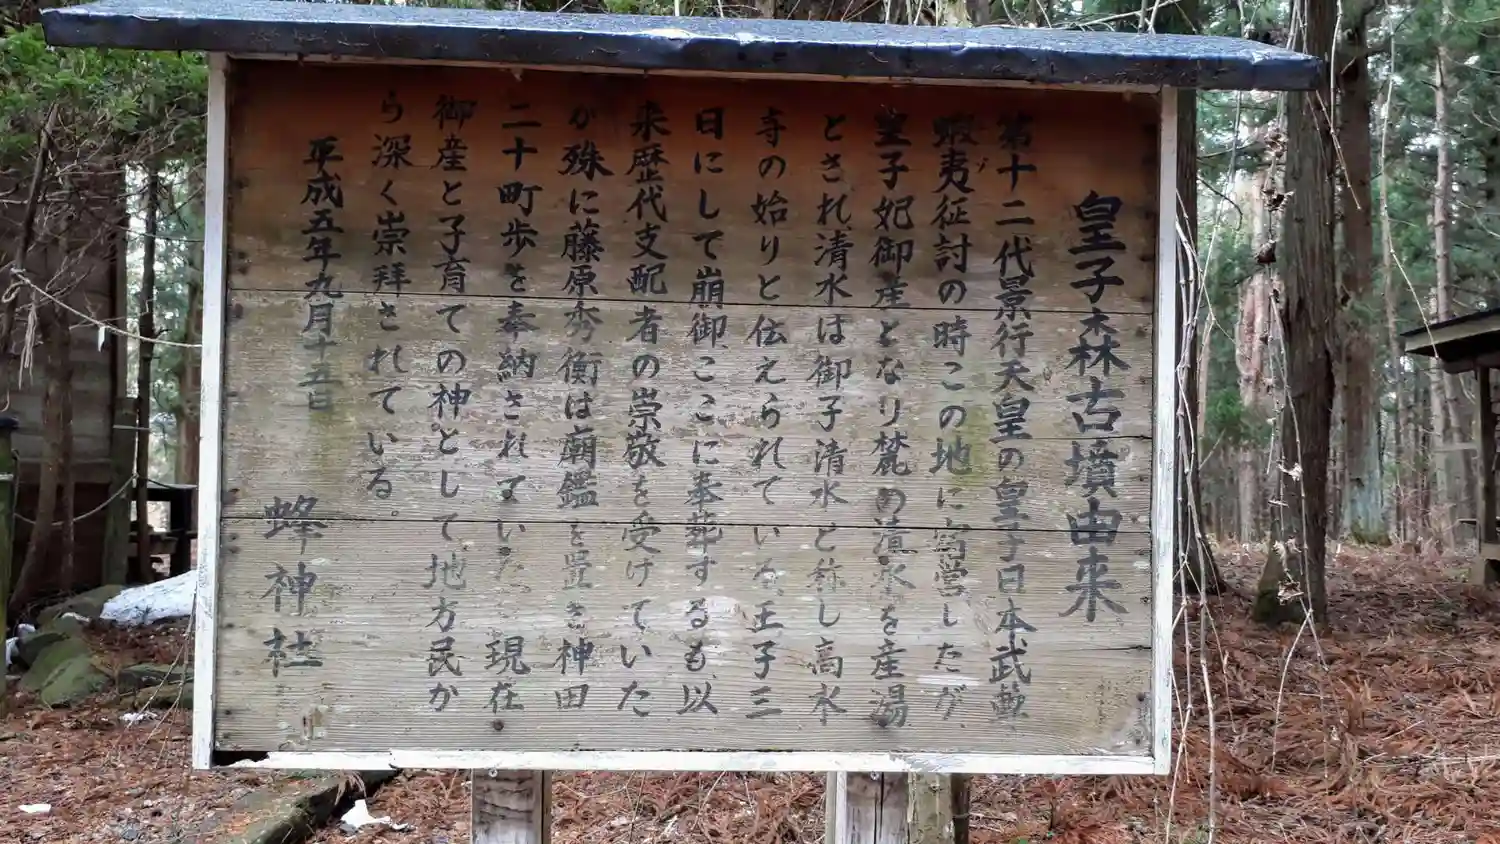 皇子森古墳由来
第十二代景行天皇の皇子日本武尊
蝦夷征討の時この地に宿営したが、
皇子妃御産となり麓の清水を産湯
とされ清水は御子清水と称し高水
寺の始りと伝えられている王子三
日にして崩御、ここに奉葬するも、以
来歴代支配者の崇敬を受けていた
が殊に藤原秀衡は廟鑑を置き神田
二十町歩を奉納されまいた。現在
御産と子育ての神として地方民か
ら深く崇拝されている。
平成五年九月十五日
蜂神社